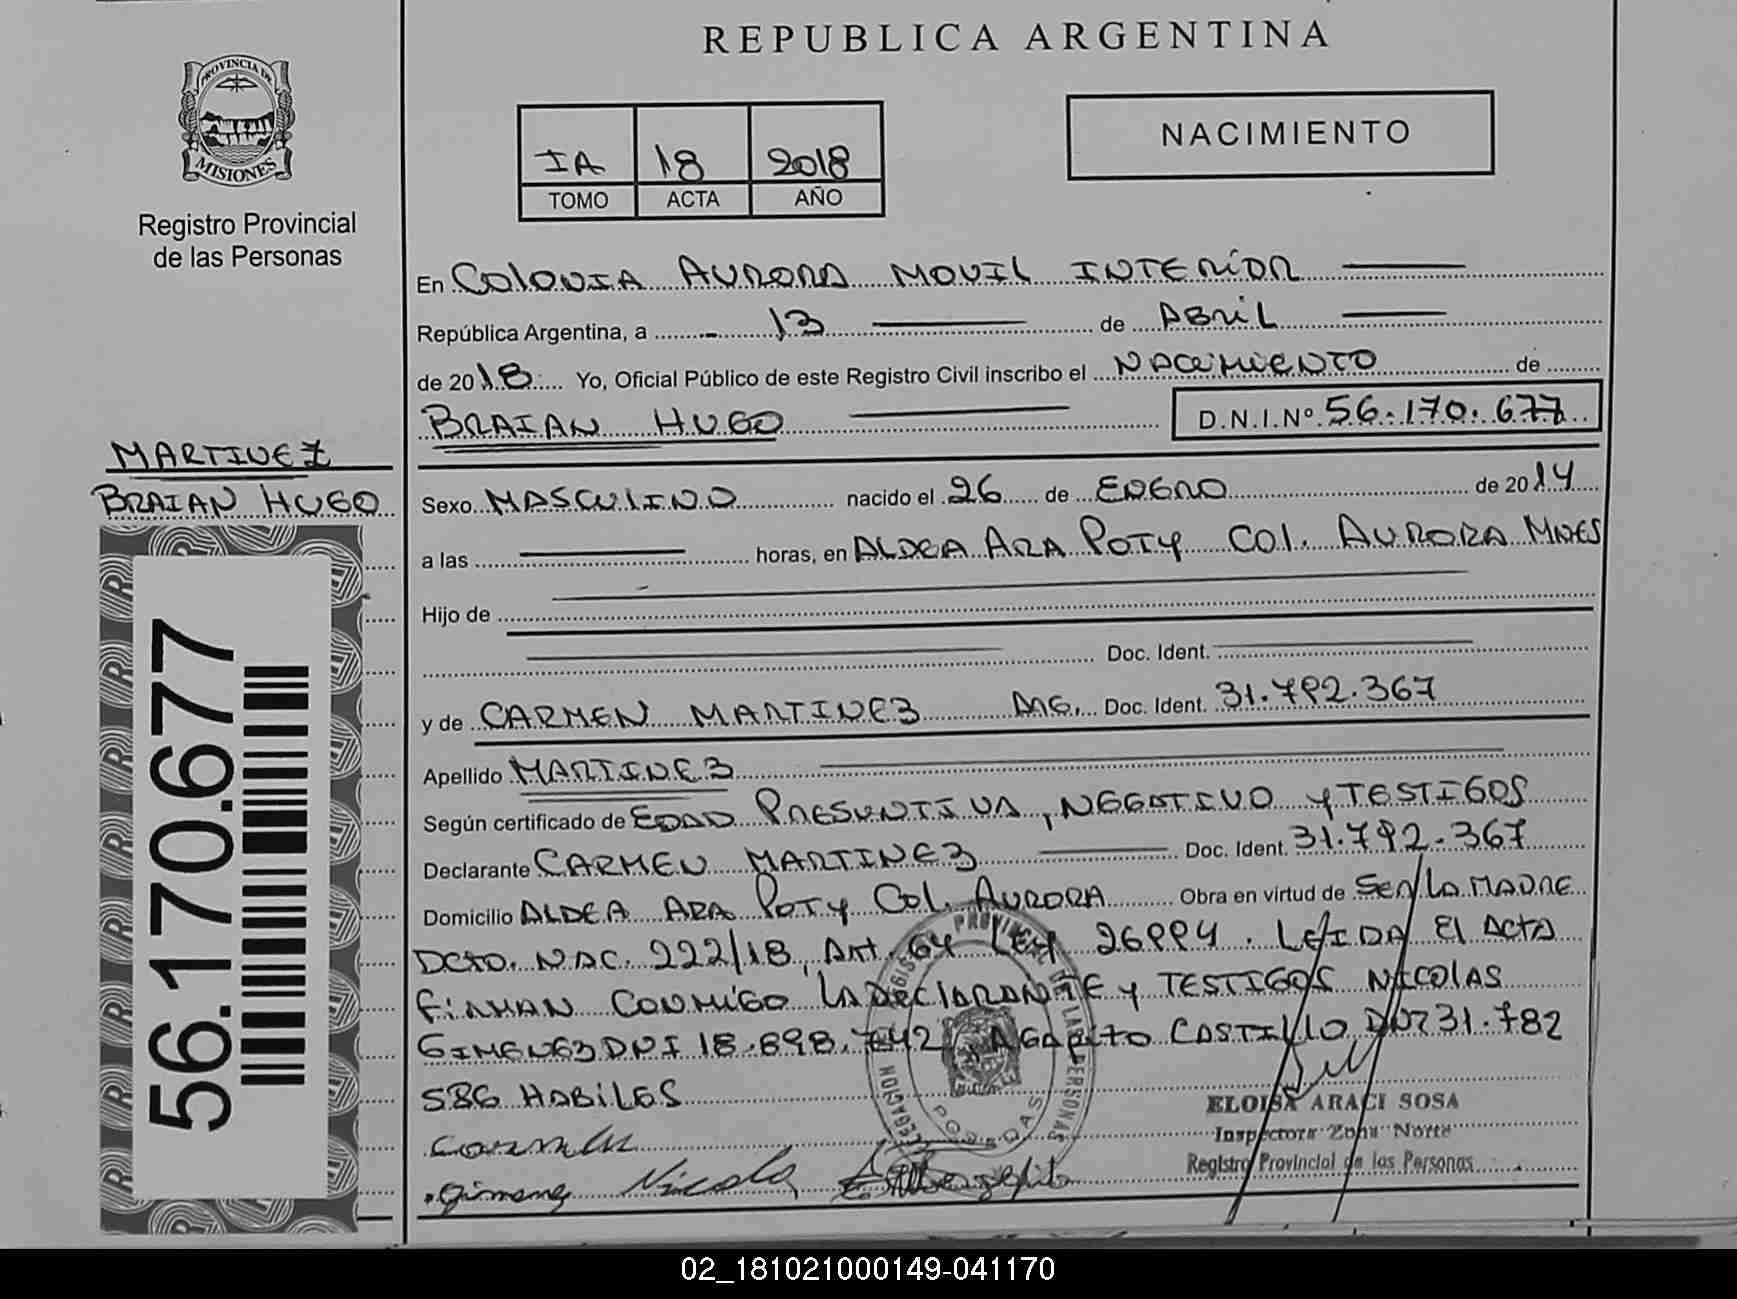 REPUBLICA ARGENTINA
PROVINCIA DE
MISIONES
Registro Provincial
de las Personas
IA 18 2018
TOMO ACTA AÑO
NACIMIENTO
En COLONIA AURORA MOVIL INTERIOR
República Argentina, a 13 de ABRIL
de 2018 Yo, Oficial Público de este Registro Civil inscribo el NACIMIENTO de
BRAIAN HUGO D.N.I.Nº 56.170.677
MARTINEZ
BRAIAN HUGO
56.170.677
Sexo MASCULINO nacido el 26 de ENERO de 2014
a las horas, en ALDEA ARA POTY COL. AURORA MNES
Hijo de
Doc. Ident.
y de CARMEN MARTINEZ ARG. Doc. Ident. 31.792.367
Apellido MARTINEZ
Según certificado de EDAD PRESUNTIVA, NEGATIVO y TESTIGOS
Declarante CARMEN MARTINEZ Doc. Ident. 31.792.367
Domicilio ALDEA ARA POTY COL. AURORA Obra en virtud de SER LA MADRE
DCTO. NAC. 222/18, ART. 64 LEY 26994. LEIDA El ACTA
FIRMAN CONMIGO LA DECLARANTE y TESTIGOS NICOLAS
GIMENEZ DNI 18.898.742 AGAPITO CASTILLO DNI 31.782
586 HABILES
ELOISA ARACI SOSA
Inspectora Zona Norte
Registro Provincial de las Personas
Gimenez Nicola
POSADAS
02_181021000149-041170